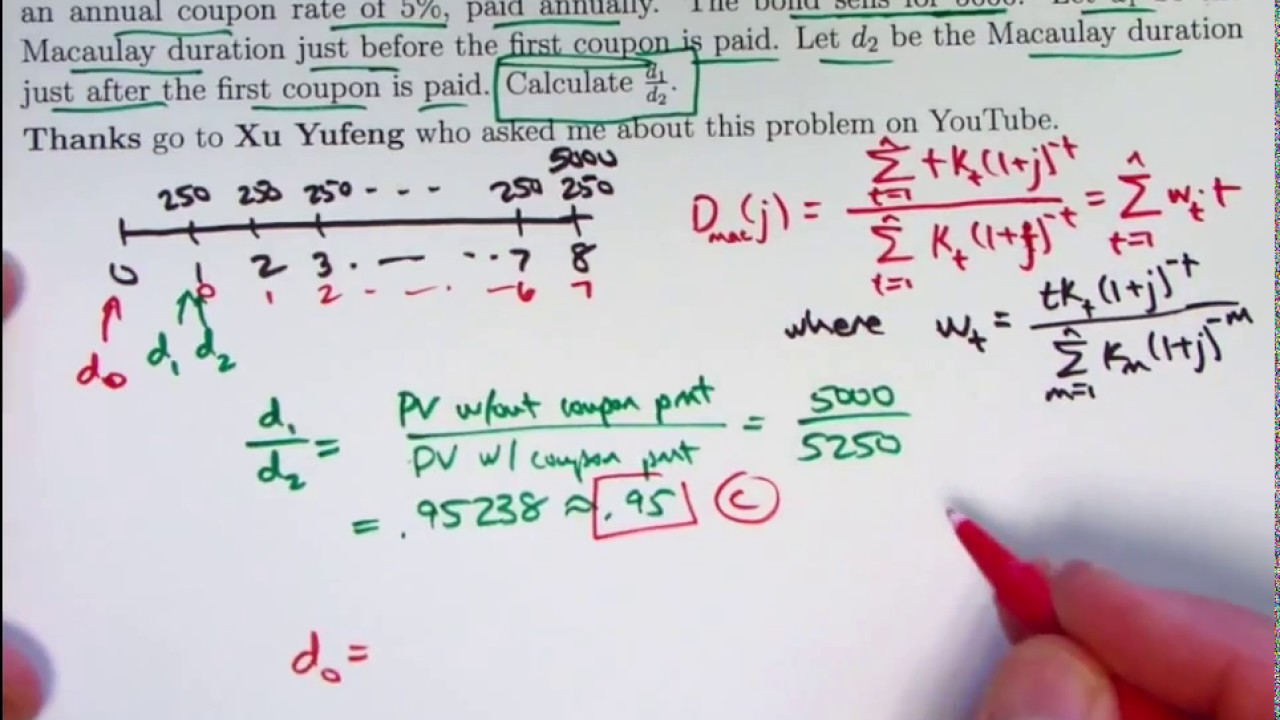 an annual coupon rate of 5%, paid annually. The bond sells for 5000. Let d₁ be the
Macaulay duration just before the first coupon is paid. Let d₂ be the Macaulay duration
just after the first coupon is paid. Calculate d₁/d₂.
Thanks go to Xu Yufeng who asked me about this problem on YouTube.
5000
250 250 250 - - - 250 250
0 1 2 3 . — - ·· 7 8
0 1 2 - — · — 6 7
d₀ d₁ d₂
D_mac(j) = Σ_{t=1}^{n} t K_t (1+j)^{-t} / Σ_{t=1}^{n} K_t (1+j)^{-t} = Σ_{t=1}^{n} w_t · t
where w_t = t K_t (1+j)^{-t} / Σ_{m=1}^{n} K_m (1+j)^{-m}
d₁/d₂ = PV w/out coupon pmt / PV w/ coupon pmt = 5000/5250
= .95238 ≈ .95 (C)
d₀ =